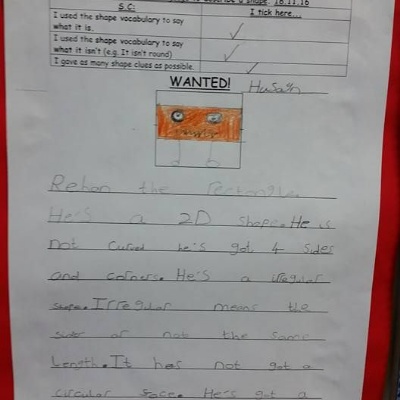 to describe a shape. 18.11.16
S.C:
I tick here...
I used the shape vocabulary to say
what it is.
I used the shape vocabulary to say
what it isn't (e.g. It isn't round)
I gave as many shape clues as possible.
WANTED!
Rehan the rectangle
He's a 2D shape. He is
not curved he's got 4 sides
and corners. He's a irregular
shape. Irregular means the
not the same
Length. It has not got a
circular face. He's got a